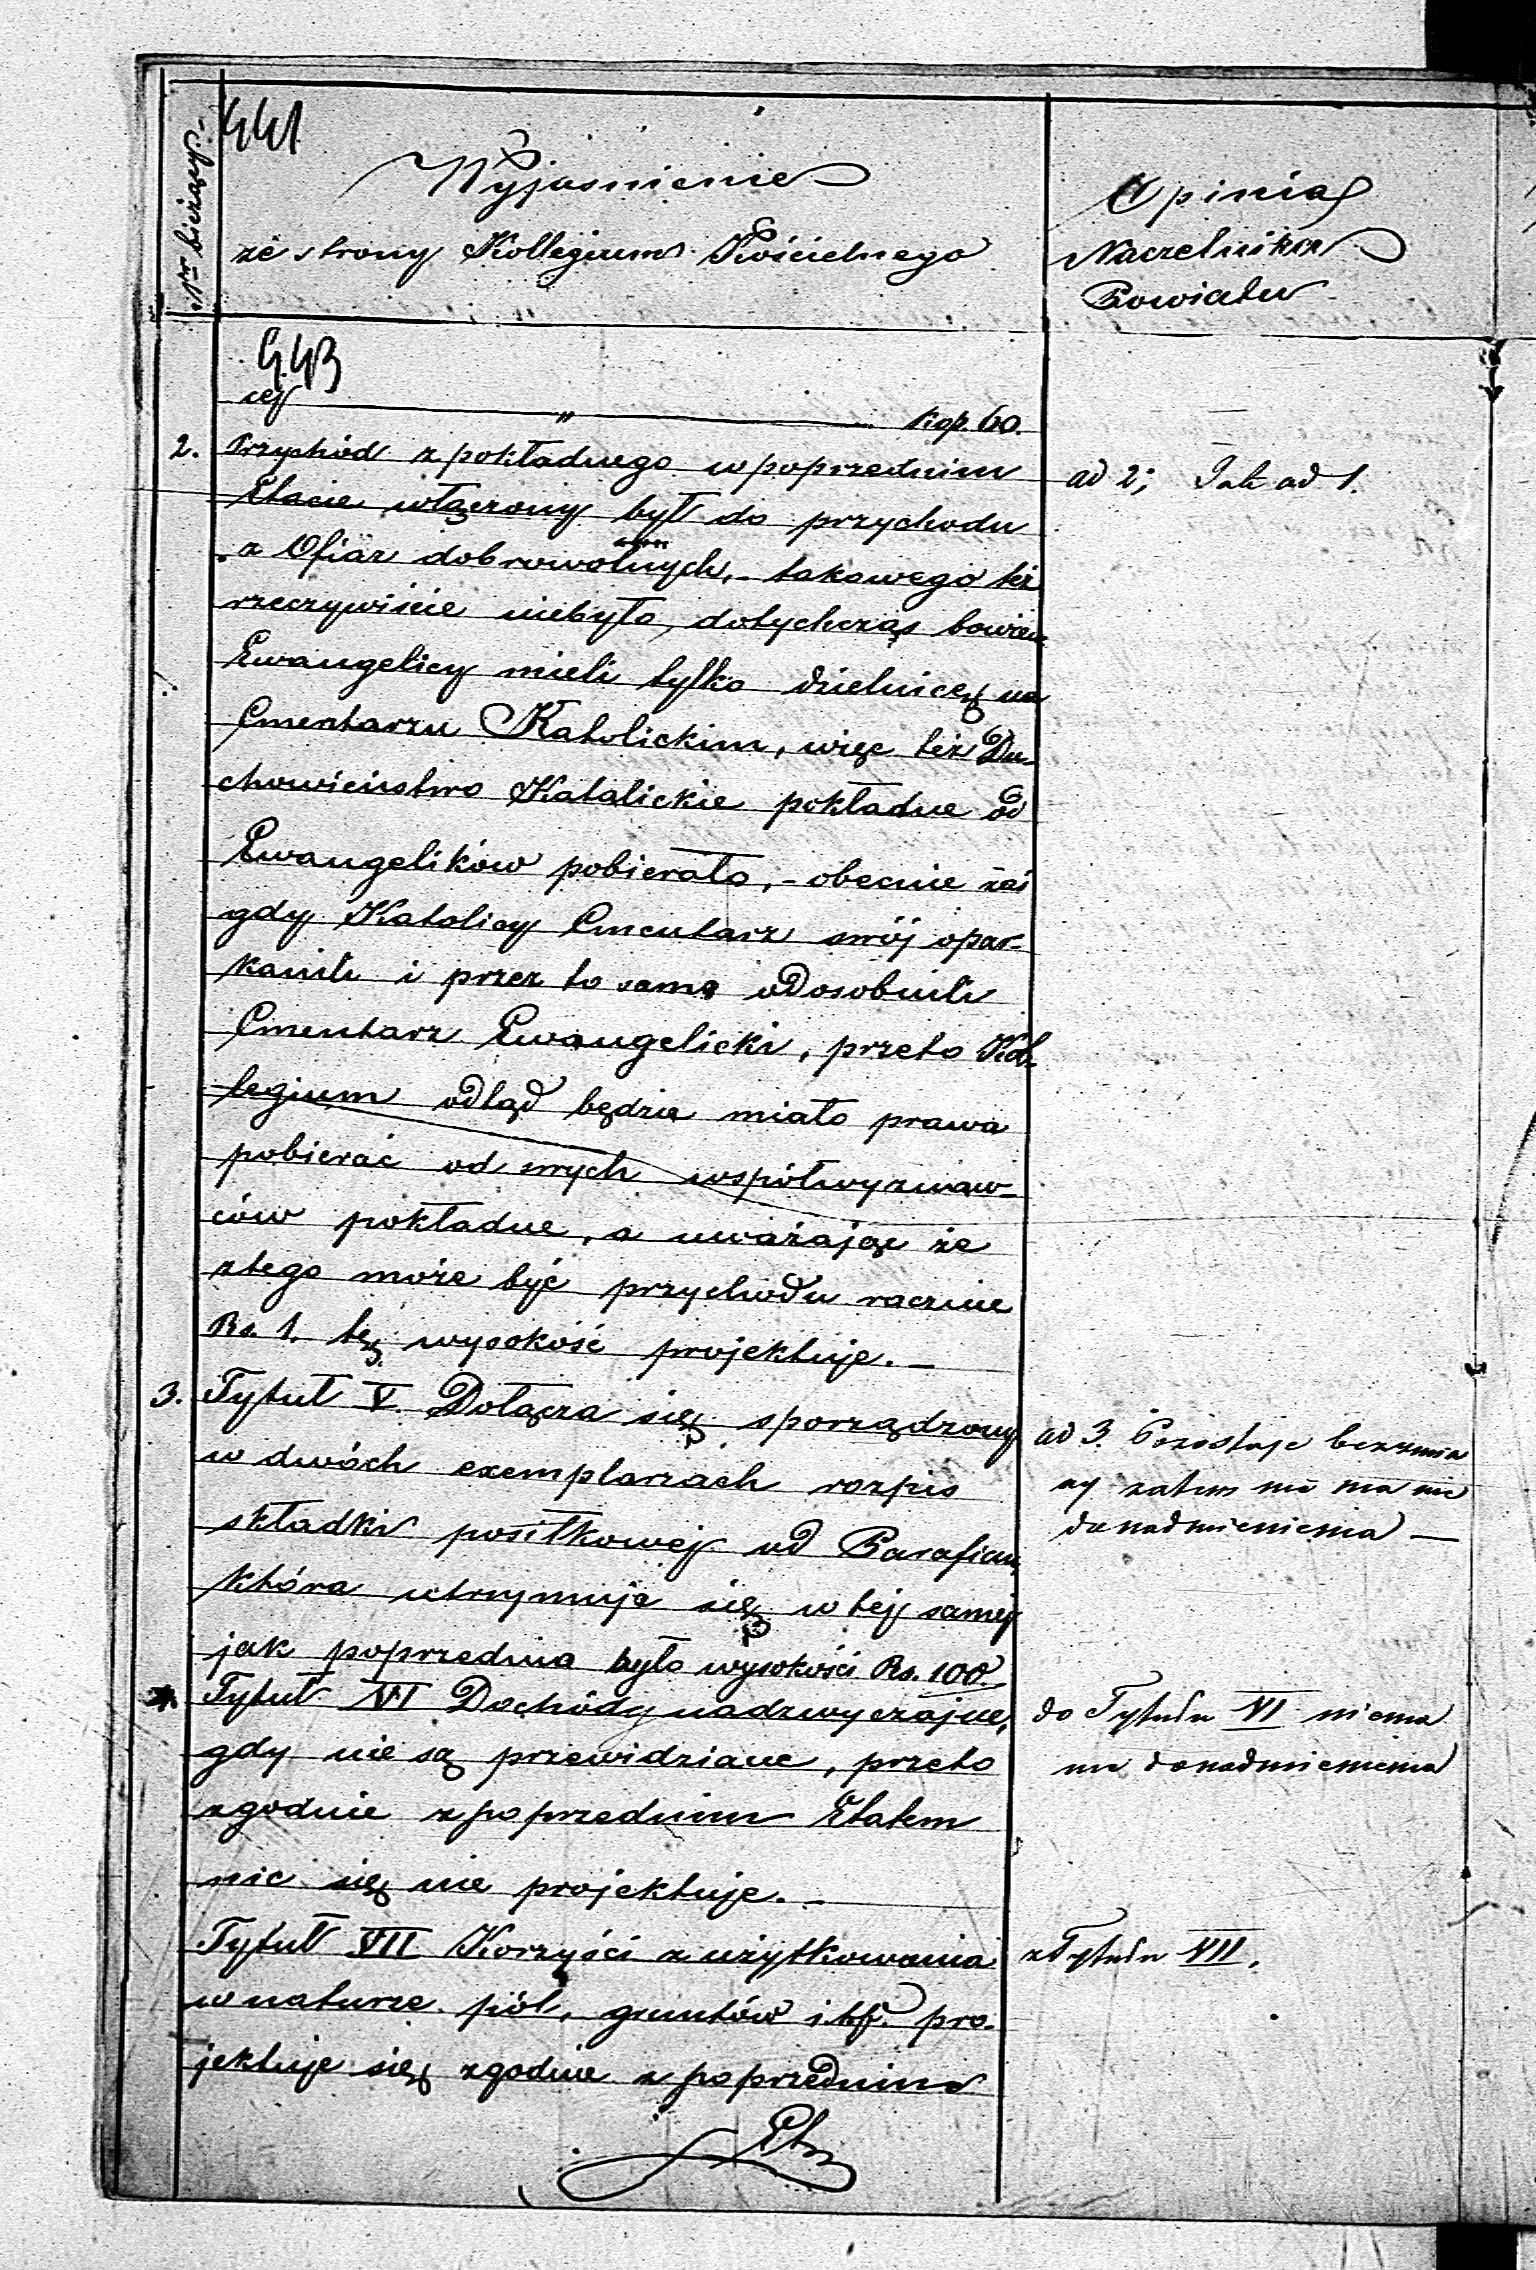 441
Nr bieżący.
Wyjasnienie
ze strony Kollegium Kościelnego
Opinia
Naczelnika
Powiatu
443
cej " kop. 60.
2. Przychód z pokładnego w poprzednim
Etacie włączony był do przychodu
z Ofiar dobrowolnych, - takowego też
rzeczywiście niebyło, dotychczas bowiem
Ewangelicy mieli tylko dzielnicę na
Cmentarzu Katolickim, więc też Du-
chowieństwo Katolickie pokładne od
Ewangelików pobierało, - obecnie zaś
gdy Katolicy Cmentarz swój opar-
kanili i przez to samo odosobnili
Cmentarz Ewangelicki, przeto Kol-
legium odtąd będzie miało prawa
pobierać od swych współwyznaw-
ców pokładne, a uważając że
z tego może być przychodu rocznie
Rs. 1. tę wysokość projektuje. -
3. Tytuł V. Dołącza się sporządzony
w dwóch exemplarzach rozpis
składki posiłkowej od Parafian,
która utrzymuje się w tej samej
jak poprzednia była wysokości Rs. 100.
Tytuł VI Dochody nadzwyczajne,
gdy nie są przewidziane, przeto
zgodnie z poprzednim Etatem
nic się nie projektuje. -
Tytuł VII Korzyści z użytkowania
w naturze pól, gruntów i.t.p. pro-
jektuje się zgodnie z poprzednim
ad 2; Jak ad 1.
ad 3. Pozostaje bez zmia
ny zatem nie ma nic
do nadmienienia —
do Tytułu VI niema
nic do nadmienienia
z Tytułu VII.